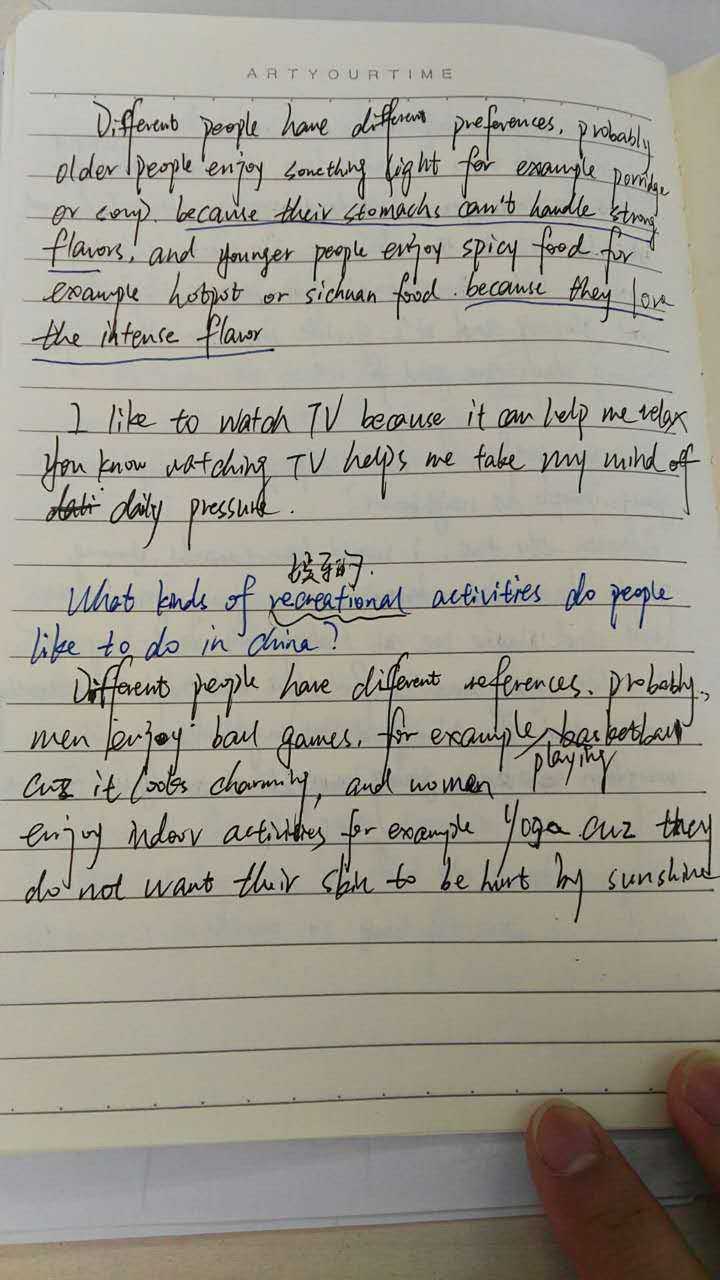 ARTYOURTIME
Different people have different preferences, probably
older people enjoy something light for example porridge
or soup. because their stomachs can't handle strong
flavors, and younger people enjoy spicy food for
example hotpot or sichuan food. because they love
the intense flavor
I like to watch TV because it can help me relax
You know watching TV helps me take my mind off
daily pressure.
娱乐的.
What kinds of recreational activities do people
like to do in china?
Different people have different references. probably,
men enjoy ball games, for example basketball
playing
cuz it looks charming, and women
enjoy indoor activities for example Yoga cuz they
do not want their skin to be hurt by sunshine